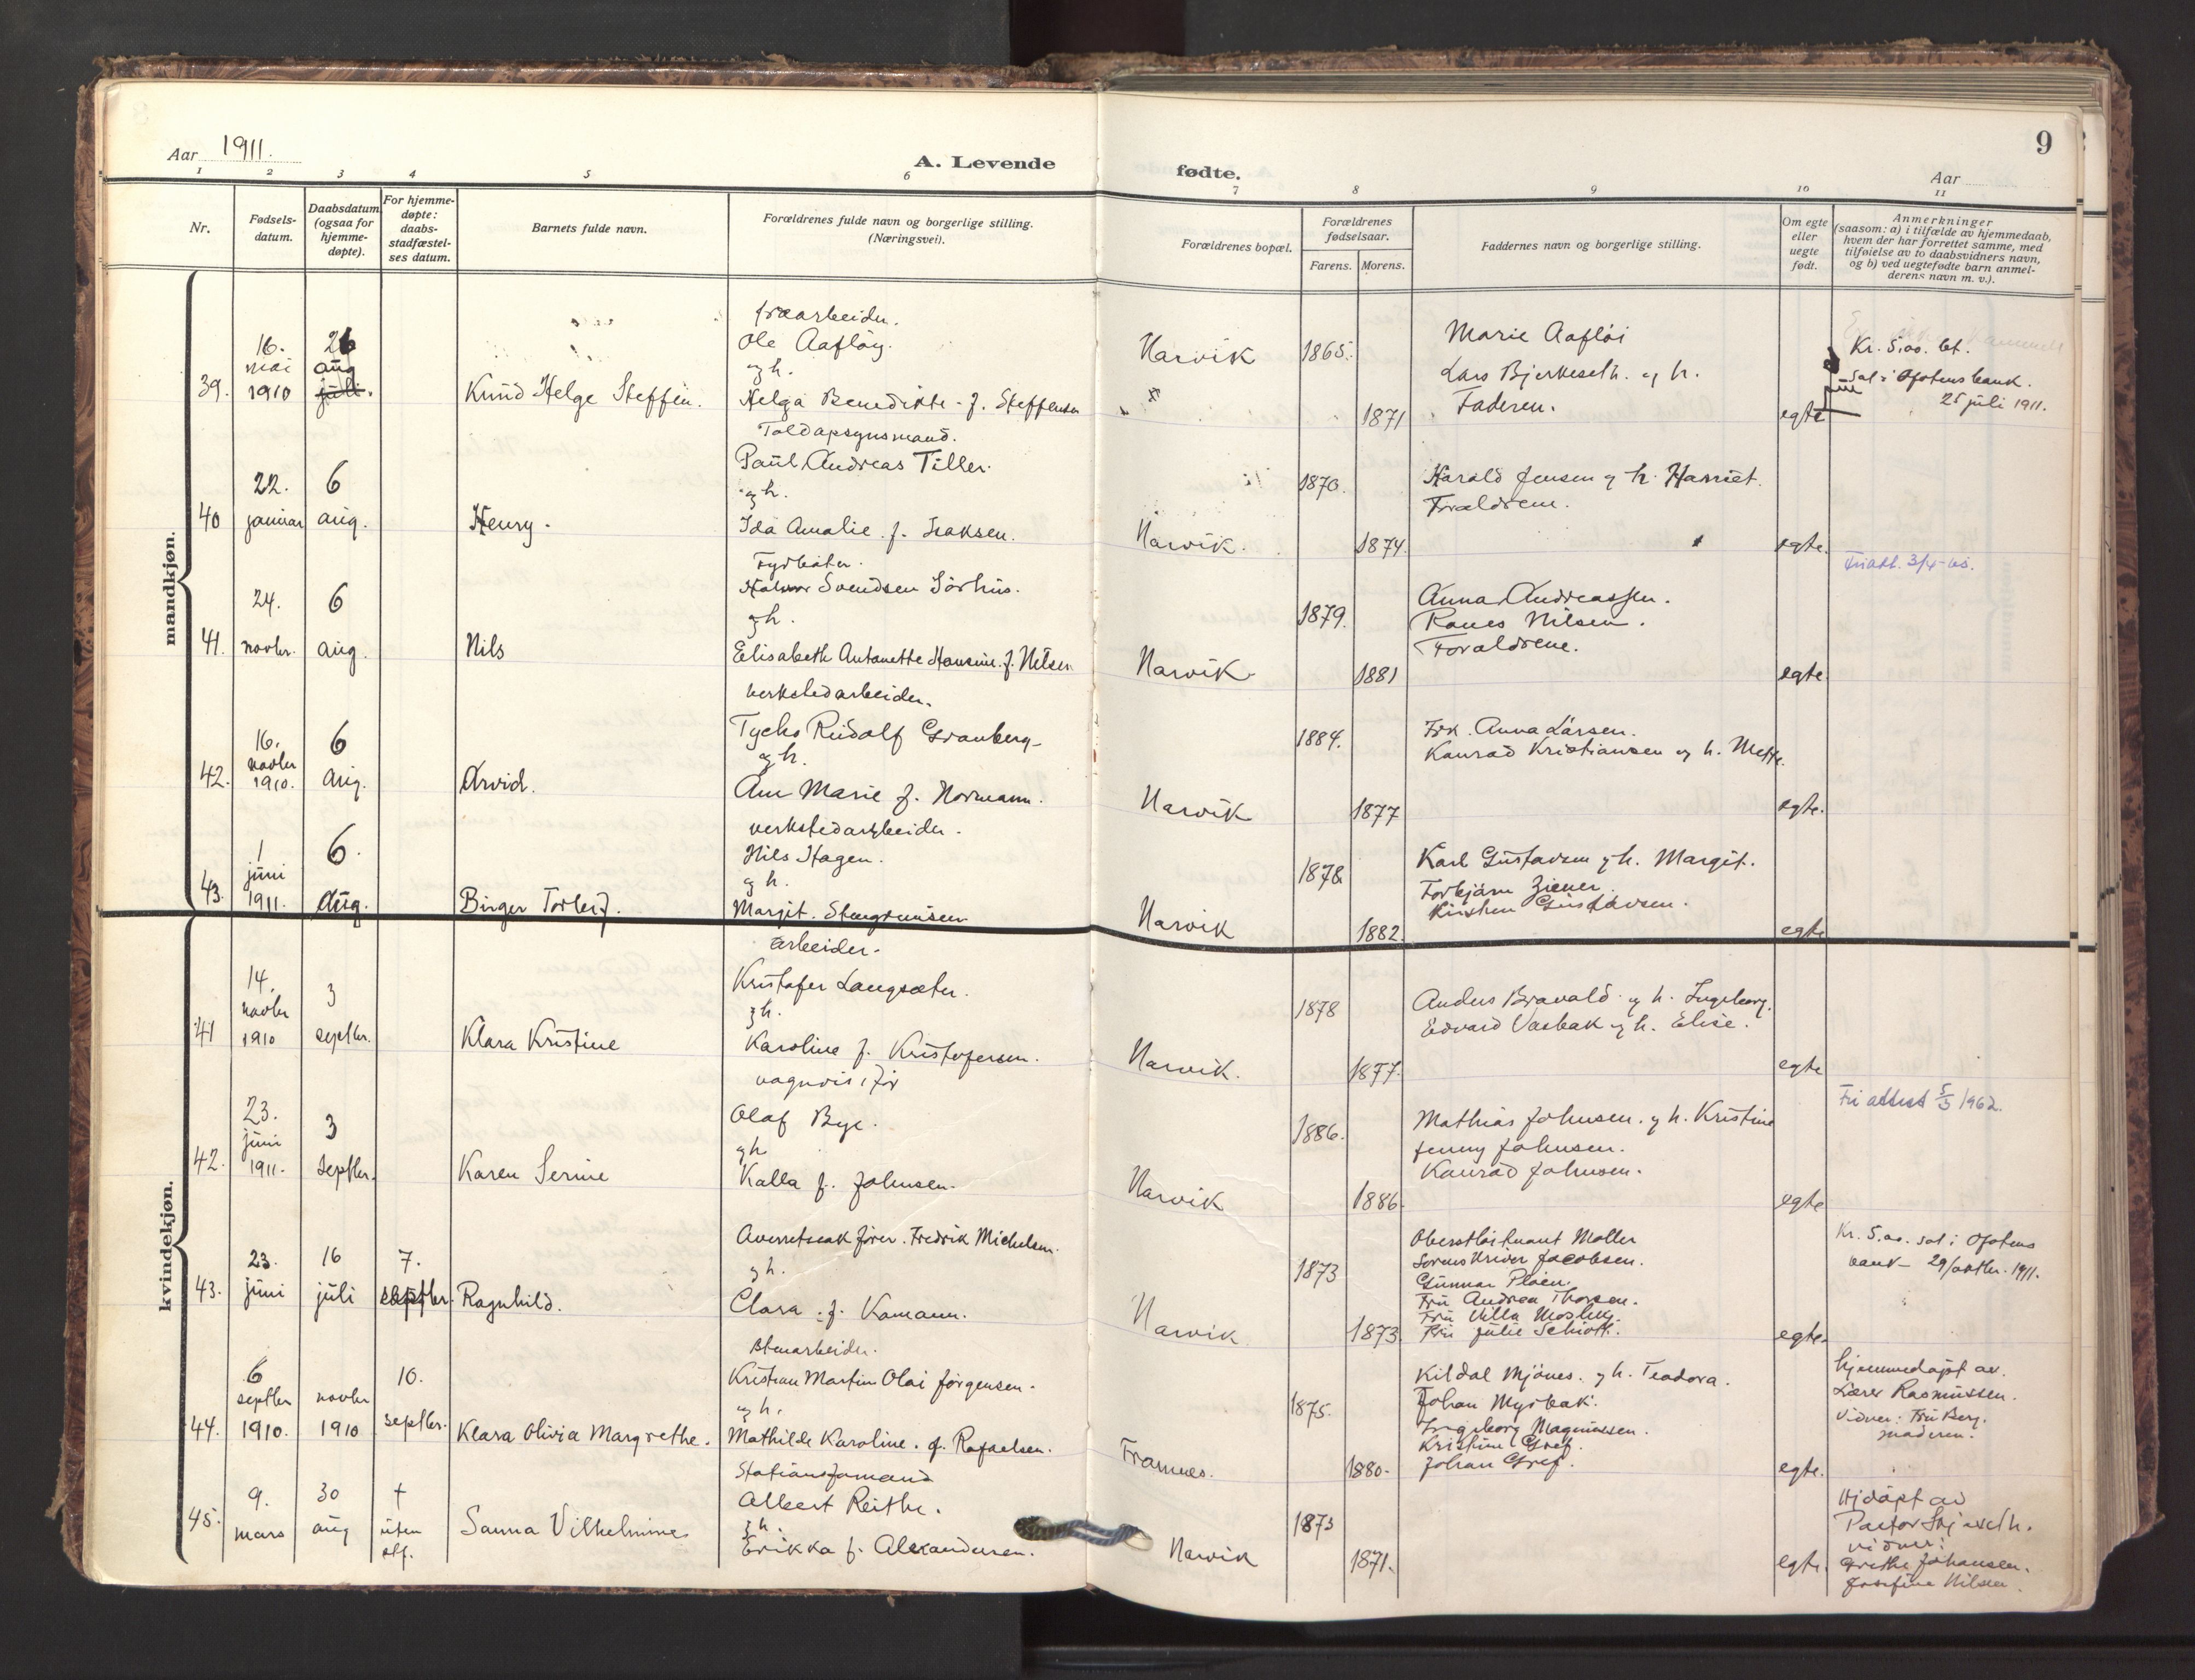 Aar 1911.
A. Levende
fødte.
9
Aar
1 2 3 4 5 6 7 8 9 10 11
Nr.
Fødsels-
datum.
Daabsdatum
(ogsaa for
hjemme-
døpte).
For hjemme-
døpte:
daabs-
stadfæstel-
ses datum.
Barnets fulde navn.
Forældrenes fulde navn og borgerlige stilling.
(Næringsvei).
Forældrenes bopæl.
Forældrenes
fødselsaar.
Farens. Morens.
Faddernes navn og borgerlige stilling.
Om egte
eller
uegte
født.
Anmerkninger
(saasom: a) i tilfælde av hjemmedaab,
hvem der har forrettet samme, med
tilføielse av to daabsvidners navn,
og b) ved uegtefødte barn anmel-
derens navn m. v.).
mandkjøn.
39.
16.
mai
1910
26
aug
juli.
Knud Helge Steffen.
træarbeider.
Ole Aafløy.
og h.
Helga Benedikte f. Steffensen
Narvik
1865.
1871
Marie Aafløi
Lars Bjerkeseth. og h.
Faderen.
egte
Kr. 5,00. bet.
sat i Ofotens bank.
25 juli 1911.
40
22.
januar
6
aug.
Henry.
Toldopsynsmand.
Paul Andreas Tiller.
og h.
Ida Amalie f. Isaksen.
Narvik.
1870.
1874.
Harald Jensen og h. Harriet.
Forældrene.
egte.
41.
24.
novbr.
6
aug.
Nils
Fyrbøter.
Halvor Svendsen Sörhus.
og h.
Elisabeth Antonette Hansine f. Nilsen.
Narvik.
1879.
1881
Anna Andreassen.
Ranes Nilsen.
Forældrene.
egte.
Friatt. 3/4-
42.
16.
novbr
1910.
6
aug.
Arvid.
verkstedarbeider.
Tycho Rudolf Granberg
og h.
Ann Marie f. Normann.
Narvik
1884.
1877
Frk. Anna Larsen.
Konrad Kristiansen og h. Mette.
egte.
43.
1
juni
1911.
6.
Aug.
Birger Torleif.
verkstedarbeider.
Nils Hagen.
og h.
Margit.
Narvik
1878
1882.
Karl Gustavsen og h. Margit.
Torbjørn Ziener.
Kirsten Gustavsen.
egte
kvindekjøn.
41
14.
novbr
1910
3
septbr.
Klara Kristine
arbeider.
Kristofer Langsæter.
og h.
Karoline f. Kristofersen.
Narvik.
1878
1877.
Anders Bravald og h. Ingeborg.
Edvard Vasbak og h. Elise.
egte
42.
23.
juni
1911.
3
septbr.
Karen Serine
vognvisitør
Olaf Bye.
og h
Kalla f. Johnsen.
Narvik
1886.
1886
Mathias Johnsen. og h. Kristine
Jenny Johnsen.
Konrad Johnsen.
egte
Fri attest 5/3 1962.
43.
23.
juni
16
juli
7.
septbr.
Ragnhild.
Overretssakfører. Fredrik Michelsen.
og h.
Clara f. Kamann.
Narvik.
1873
1873.
Oberstløitnant Møller
Sorenskriver Jacobsen.
Gunnar Ploen.
Fru Andrea Thorsen.
Fru Villa
Fru Julie Schiøtt.
egte.
Kr. 5,00. sat i Ofotens
bank 29/oktbr. 1911.
44.
6
septbr
1910.
novbr
1910
10.
septbr.
Klara Olivia Margrethe.
Stenarbeider.
Kristian Martin Olai Jørgensen.
og h.
Mathilde Karoline. f. Rafaelsen.
Framnes.
1875.
1880.
Kildal Mjönes. og h. Teodora.
Johan Myrbak.
Ingeborg Magnussen.
Kristine Gref.
Johan Gref.
egte.
hjemmedøpt av.
Lærer Rasmussen.
Vidner: Fru Berg.
moderen.
45.
9.
mars
30
aug
†
uten
stf.
Sanna Vilhelmine
Stationsformand
Albert Reithe.
og h.
Erikka f. Alexandersen.
Narvik
1873
1871.
egte.
Hjdøpt av
Pastor
vidner:
Grethe Johansen.
Josefine Nilsen.